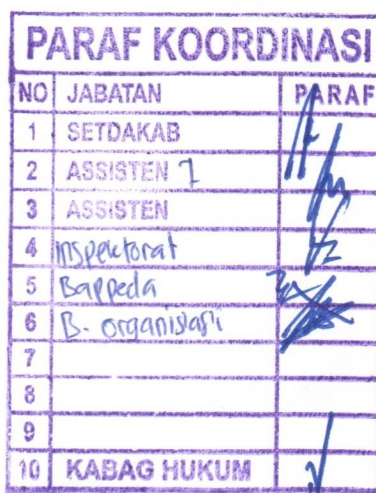 PARAF KOORDINASI
NO JABATAN PARAF
1 SETDAKAB
2 ASSISTEN 1
3 ASSISTEN
4 Inspektorat
5 Bappeda
6 B. organisasi
7
8
9
10 KABAG HUKUM